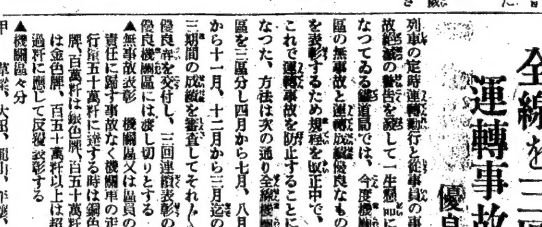 全線を三區
運轉事故
優良
列車の定時運轉勵行と從事員の事
故絶滅の警告を發して一生懸命に
なつてゐる鐵道局では、今度機關
區の無事故と運轉成績優良なもの
を表彰するため規程を改正中で、
これで運轉事故を防止することに
なつた、方法は次の通り全線機關
區を三區分し四月から七月、八月
から十一月、十二月から三月迄の
三期間の成績を審査してそれ〲
優良牌を交付し、三回連續表彰の
優良機關區には渡し切りとする
▲無事故表彰 機關區又は區員の
責任に歸す事故なく機關車の走
行粁五十萬粁に達する時は銅色
牌、百萬粁は銀色牌、百五十萬粁
は金色牌、百五十萬粁以上は超
過粁に應して反覆表彰する
▲機關區々分
甲 草梁、大田、龍山、平壤、